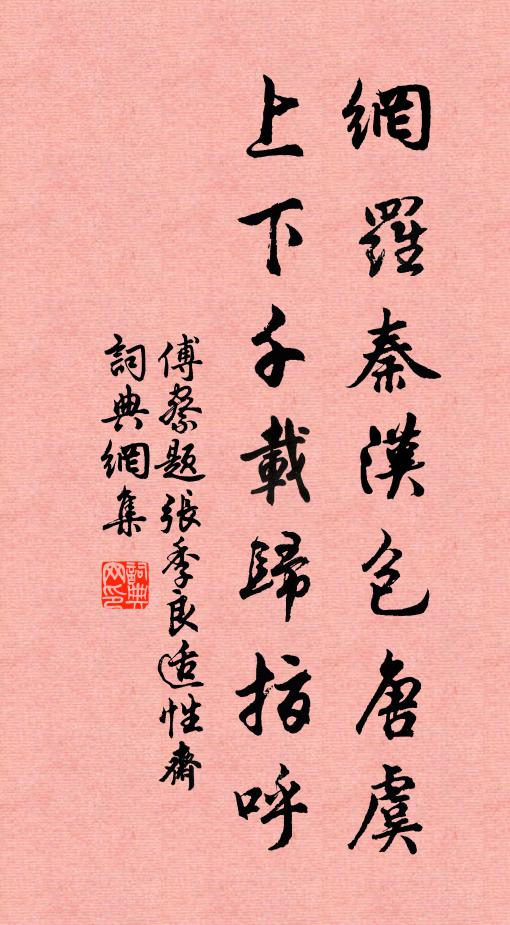 網羅秦漢包唐虞
上下千載歸指呼
傅察題張季良适性齋
詞典網集
詞典网印